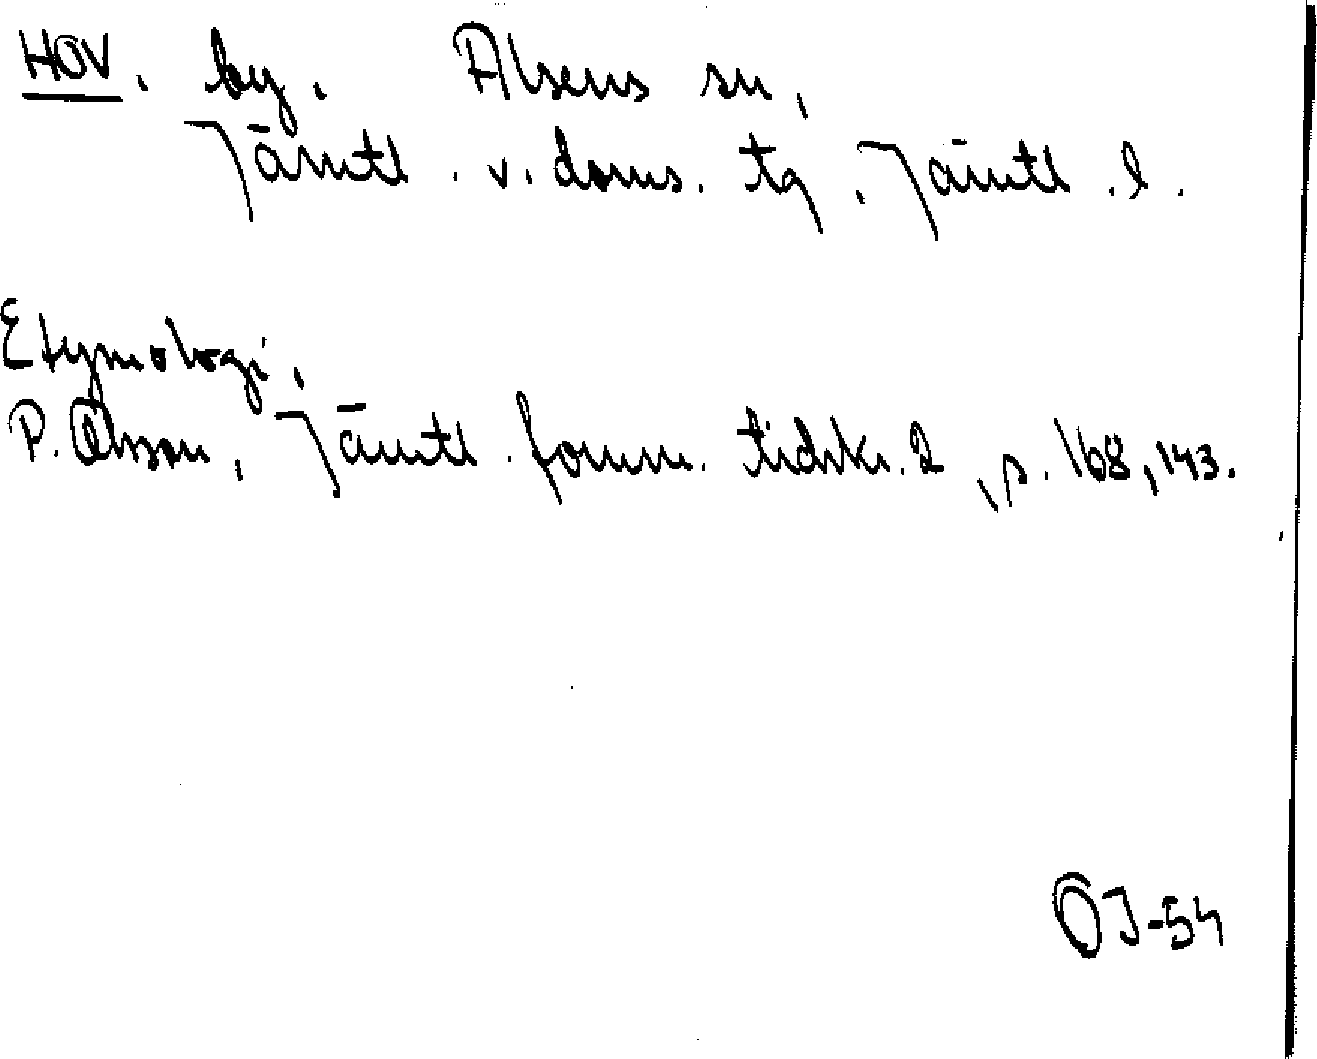 HOV. by. Alsens sn,
Jämtl. v. doms. tg, Jämtl. l.
Etymologi.
P. Olsson, Jämtl. fornm. tidskr. 2, s. 168, 143.
OJ-54